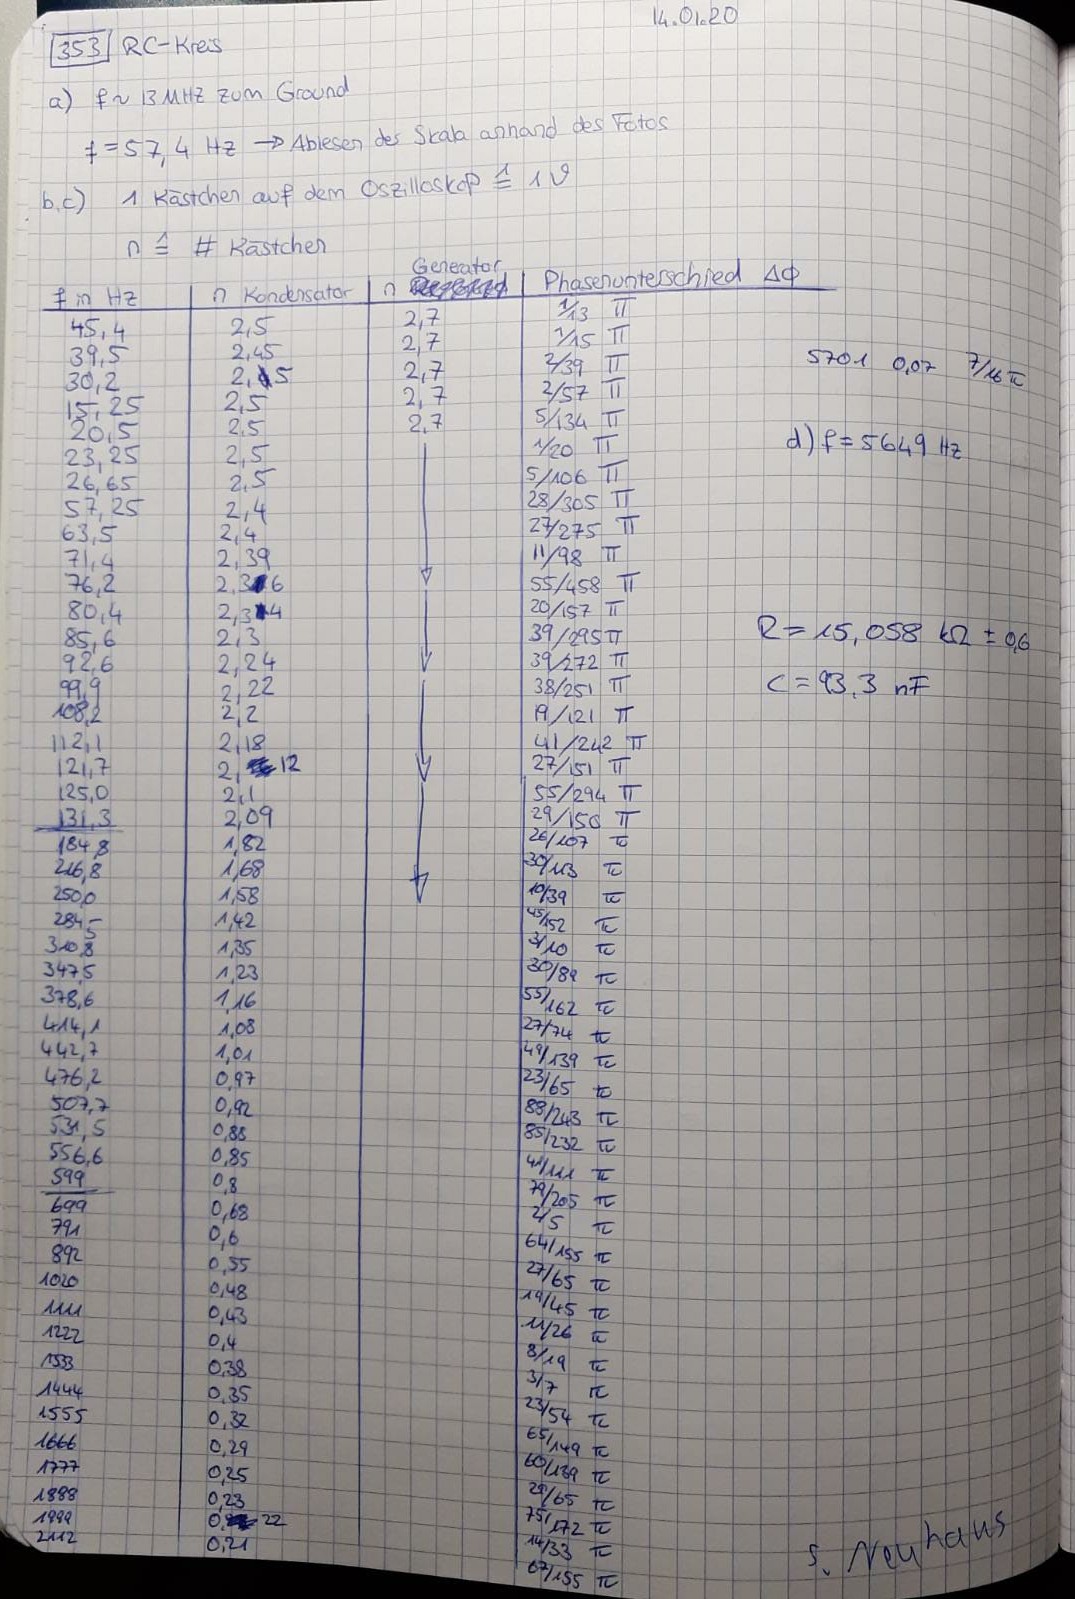 14.01.20
353 RC-Kreis
a) f ~ 13 MHz zum Ground
f = 57,4 Hz → Ablesen des Skala anhand des Fotos
b,c) 1 Kästchen auf dem Oszilloskop ≙ 1 V
n ≙ # Kästchen
f in Hz | n Kondensator | n Geneator | Phasenunterschied Δϕ
45,4 2,5 2,7 1/13 π
39,5 2,45 2,7 1/15 π
30,2 2,5 2,7 2/39 π
15,25 2,5 2,7 2/57 π
20,5 2,5 2,7 5/134 π
23,25 2,5 1/20 π
26,65 2,5 5/106 π
57,25 2,4 28/305 π
63,5 2,4 27/275 π
71,4 2,39 11/98 π
76,2 2,36 55/458 π
80,4 2,34 20/157 π
85,6 2,3 39/295 π
92,6 2,24 39/272 π
99,9 2,22 38/251 π
108,2 2,2 19/121 π
112,1 2,18 41/242 π
121,7 2,12 27/151 π
125,0 2,1 55/294 π
131,3 2,09 29/150 π
184,8 1,82 26/107 π
216,8 1,68 30/113 π
250,0 1,58 10/39 π
284,5 1,42 45/152 π
310,8 1,35 3/10 π
347,5 1,23 30/89 π
378,6 1,16 55/162 π
414,1 1,08 27/74 π
442,7 1,01 49/139 π
476,2 0,97 23/65 π
507,7 0,92 88/243 π
531,5 0,88 85/232 π
556,6 0,85 41/111 π
599 0,8 79/205 π
699 0,68 2/5 π
791 0,6 64/155 π
892 0,55 27/65 π
1020 0,48 19/45 π
1111 0,43 11/26 π
1222 0,4 8/19 π
1333 0,38 3/7 π
1444 0,35 23/54 π
1555 0,32 65/149 π
1666 0,29 60/139 π
1777 0,25 29/65 π
1888 0,23 75/172 π
1999 0,22 14/33 π
2112 0,21 67/155 π
5701 0,07 7/16 π
d) f = 5649 Hz
R = 15,058 kΩ ± 0,6
C = 93,3 nF
S. Neuhaus